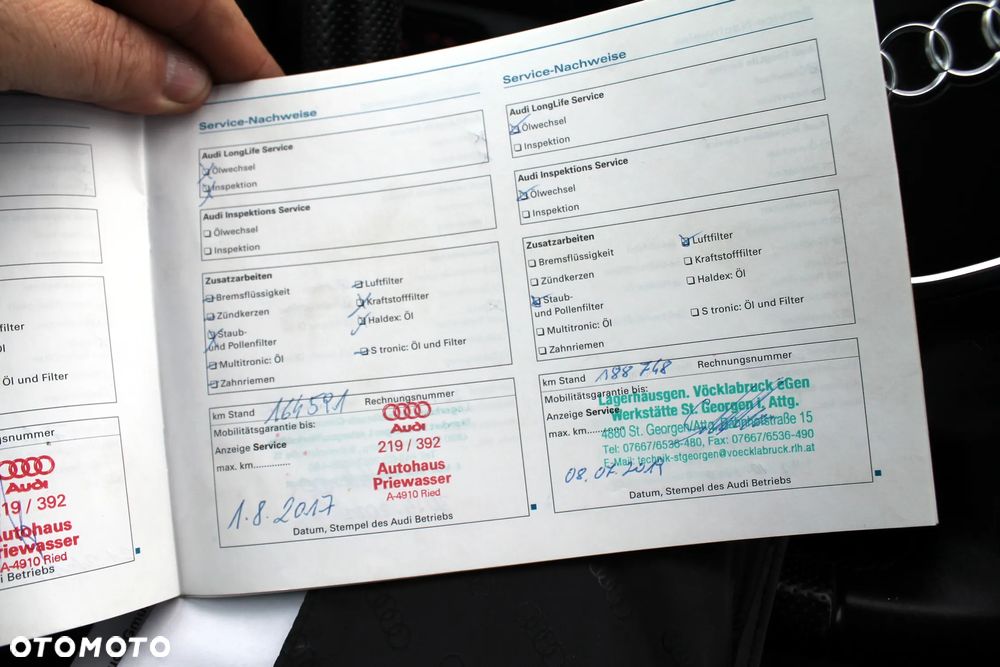 filter
Öl
Öl und Filter
nummer
Audi
19 / 392
Autohaus
Priewasser
A-4910 Ried
Betriebs
Service-Nachweise
Audi LongLife Service
Ölwechsel
Inspektion
Audi Inspektions Service
Ölwechsel
Inspektion
Zusatzarbeiten
Bremsflüssigkeit
Luftfilter
Zündkerzen
Kraftstofffilter
Staub-
und Pollenfilter
Haldex: Öl
Multitronic: Öl
S tronic: Öl und Filter
Zahnriemen
km Stand 164591
Rechnungsnummer
Mobilitätsgarantie bis:
Anzeige Service
max. km..............
Audi
219 / 392
Autohaus
Priewasser
A-4910 Ried
1.8.2017
Datum, Stempel des Audi Betriebs
Service-Nachweise
Audi LongLife Service
Ölwechsel
Inspektion
Audi Inspektions Service
Ölwechsel
Inspektion
Zusatzarbeiten
Luftfilter
Bremsflüssigkeit
Kraftstofffilter
Zündkerzen
Haldex: Öl
Staub-
und Pollenfilter
S tronic: Öl und Filter
Multitronic: Öl
Zahnriemen
km Stand 188748
Rechnungsnummer
Mobilitätsgarantie bis:
Anzeige Service
max. km........
Lagerhausgen. Vöcklabruck eGen
Werkstätte St. Georgen i. Attg.
4880 St. Georgen/Attg. Bahnhofstraße 15
Tel: 07667/6536-480, Fax: 07667/6536-490
E-Mail: technik-stgeorgen@voecklabruck.rlh.at
08.07.2019
Datum, Stempel des Audi Betriebs
OTOMOTO